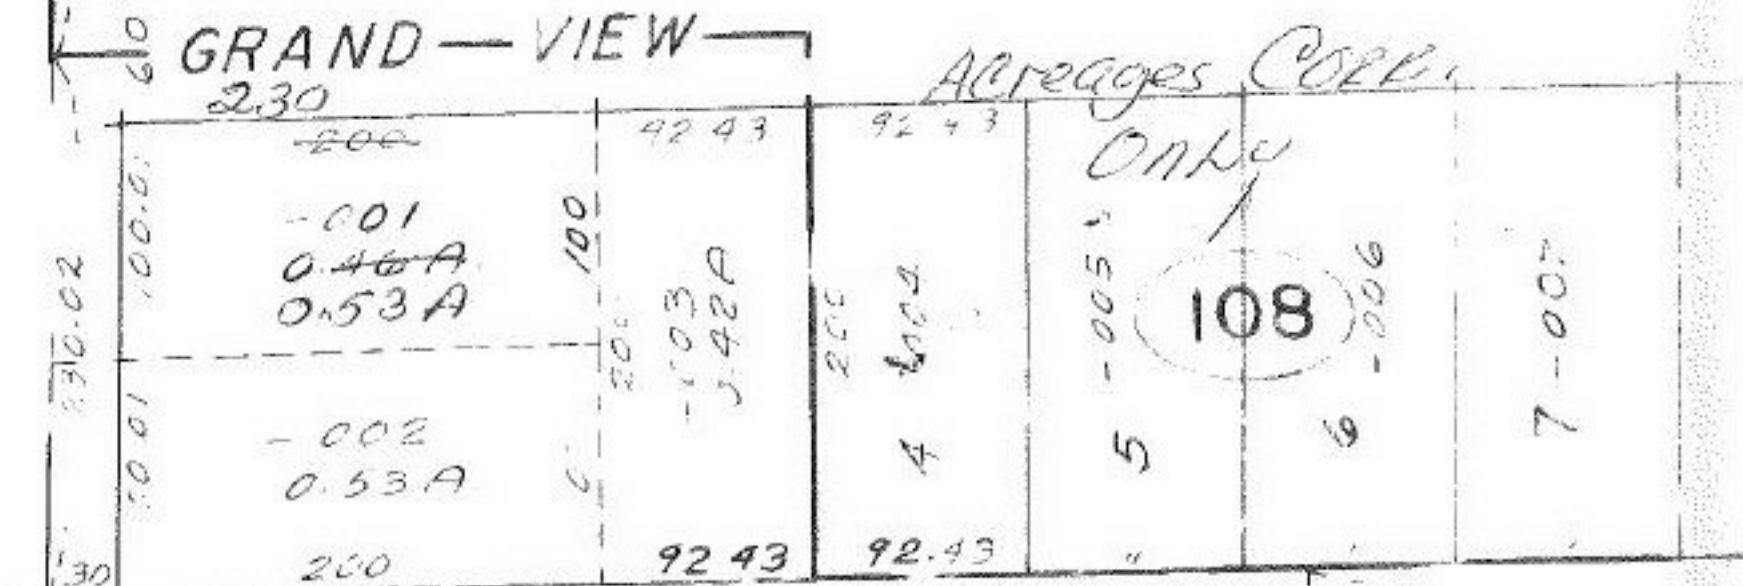 60
GRAND — VIEW
Acreages Corr.
Only
230
200
92 43
92 43
100.01
-001
0.46 A
0.53 A
100
230.02
200
-003
200
4
5 -005
108
6 -006
7 -007
-002
0.53 A
200
92 43
92.43
"
30